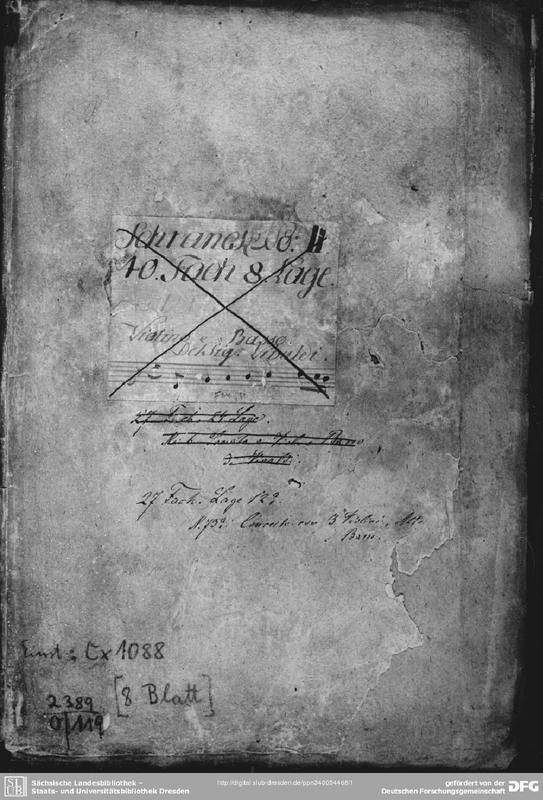 Schranck No: II.
10. Fach 8. Lage.
Violino e Basso
Del Sig: Vivaldi.
27 Fach 24 Lage.
Basso
27 Fach. Lage 12?.
Concerto con 3 Violini,
Basso.
Einst: Cx 1088
2389
O|119
[8 Blatt]
SLUB
Sächsische Landesbibliothek –
Staats- und Universitätsbibliothek Dresden
http://digital.slub-dresden.de/ppn240054468/1
gefördert von der
Deutschen Forschungsgemeinschaft
DFG